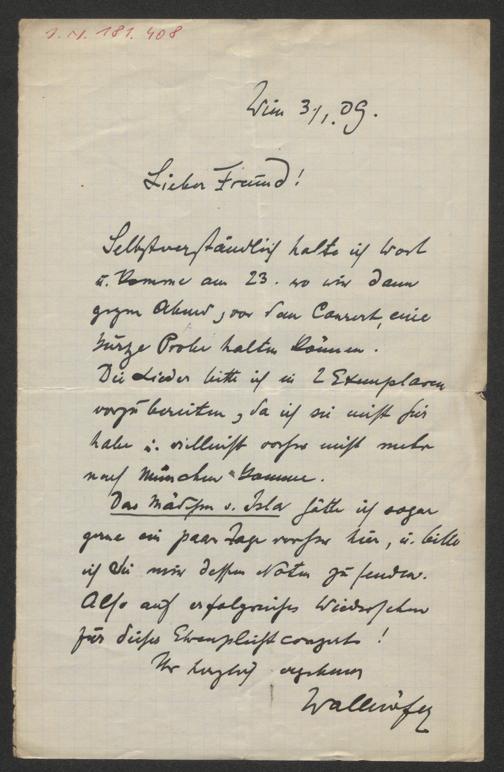 I.N. 181.408
Wien 3/1.09.
Lieber Freund!
Selbstverständlich halte ich Wort
u. komme am 23. wo wir dann
gegen Abend, vor dem Concert, eine
kurze Probe halten können.
Die Lieder bitte ich in 2 Exemplaren
vorzubereiten, da ich sie nicht hier
habe u. vielleicht vorher nicht mehr
nach München komme.
Das Mädchen v. Isla hätte ich sogar
gerne ein paar Tage vorher hier, u. bitte
ich Sie mir dessen Noten zu senden.
Also auf erfolgreiches Wiedersehen
für dieses Concert!
Ihr herzlich ergebener
Wallnöfer